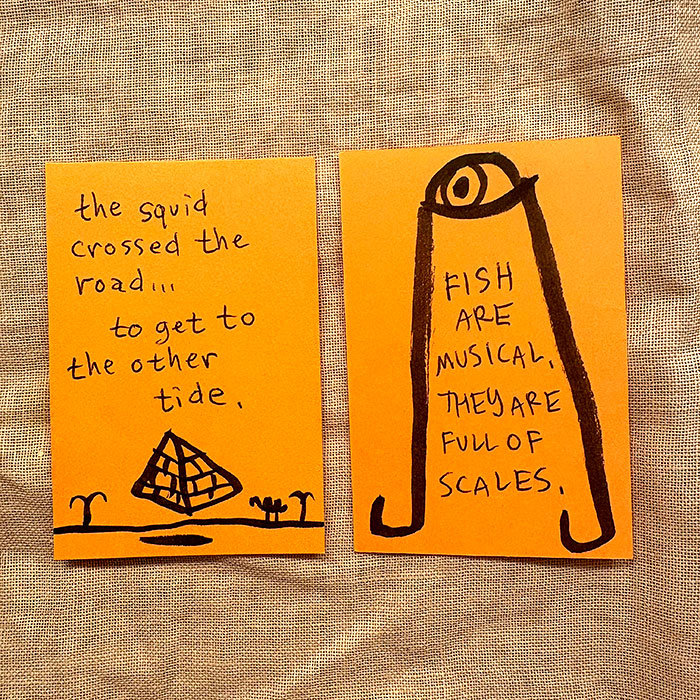 the squid
crossed the
road...
to get to
the other
tide.
FISH
ARE
MUSICAL.
THEY ARE
FULL OF
SCALES.